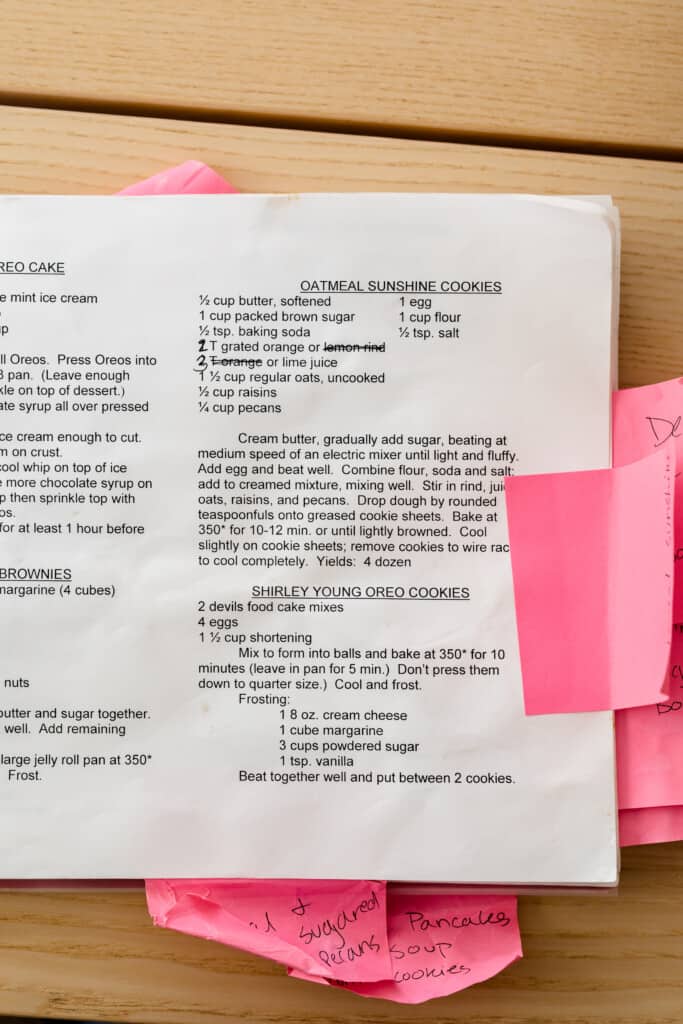 REO CAKE
e mint ice cream
p
ll Oreos. Press Oreos into
3 pan. (Leave enough
kle on top of dessert.)
ate syrup all over pressed
ce cream enough to cut.
m on crust.
cool whip on top of ice
e more chocolate syrup on
p then sprinkle top with
os.
for at least 1 hour before
BROWNIES
margarine (4 cubes)
nuts
butter and sugar together.
well. Add remaining
large jelly roll pan at 350*
Frost.
OATMEAL SUNSHINE COOKIES
½ cup butter, softened 1 egg
1 cup packed brown sugar 1 cup flour
½ tsp. baking soda ½ tsp. salt
2 T grated orange or lemon rind
2 T orange or lime juice
1 ½ cup regular oats, uncooked
½ cup raisins
¼ cup pecans
Cream butter, gradually add sugar, beating at
medium speed of an electric mixer until light and fluffy.
Add egg and beat well. Combine flour, soda and salt;
add to creamed mixture, mixing well. Stir in rind, juic
oats, raisins, and pecans. Drop dough by rounded
teaspoonfuls onto greased cookie sheets. Bake at
350* for 10-12 min. or until lightly browned. Cool
slightly on cookie sheets; remove cookies to wire rac
to cool completely. Yields: 4 dozen
SHIRLEY YOUNG OREO COOKIES
2 devils food cake mixes
4 eggs
1 ½ cup shortening
Mix to form into balls and bake at 350* for 10
minutes (leave in pan for 5 min.) Don't press them
down to quarter size.) Cool and frost.
Frosting:
1 8 oz. cream cheese
1 cube margarine
3 cups powdered sugar
1 tsp. vanilla
Beat together well and put between 2 cookies.
De
sunshine
+
sugared
pecans
Pancakes
soup
cookies